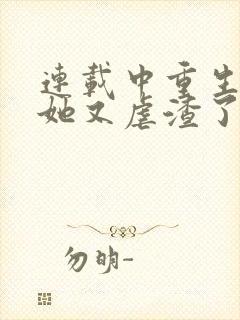 連載中重生
她又虐渣了
勿明-